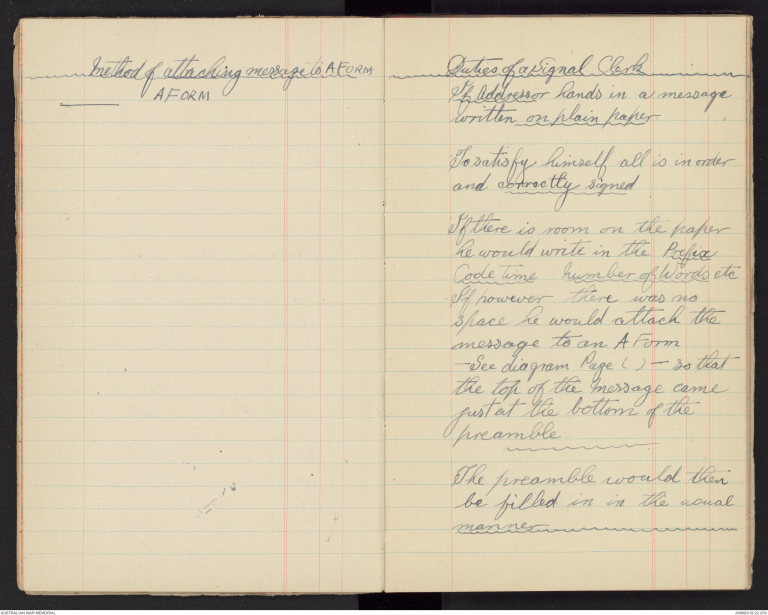 Method of attaching message to A FORM
A FORM
Duties of a Signal Clerk
If Addressor hands in a message
written on plain paper
To satisfy himself all is in order
and correctly signed
If there is room on the paper
he would write in the Prefix
Code time number of Words etc
If however there was no
space he would attach the
message to an A Form
— See diagram Page ( ) — so that
the top of the message came
just at the bottom of the
preamble
The preamble would then
be filled in in the usual
manner
AUSTRALIAN WAR MEMORIAL
AWM2019.22.279